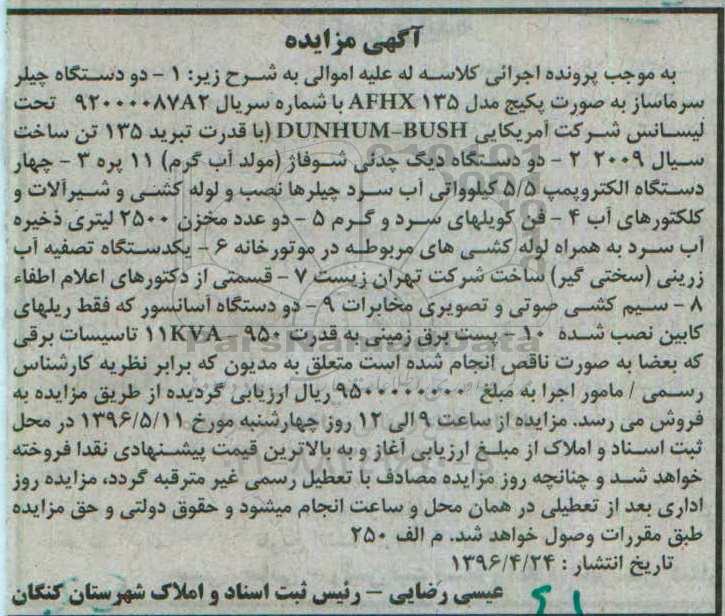 آگهی مزایده
به موجب پرونده اجرائی کلاسه له علیه اموالی به شرح زیر: ۱ - دو دستگاه چیلر
سرماساز به صورت پکیج مدل AFHX ۱۳۵ با شماره سریال ۹۲۰۰۰۰۸۷A۲ تحت
لیسانس شرکت آمریکایی DUNHUM-BUSH (با قدرت تبرید ۱۳۵ تن ساخت
سیال ۲۰۰۹ ۲ - دو دستگاه دیگ چدنی شوفاژ (مولد آب گرم) ۱۱ پره ۳ - چهار
دستگاه الکتروپمپ ۵/۵ کیلوواتی آب سرد چیلرها نصب و لوله کشی و شیرآلات و
کلکتورهای آب ۴ - فن کویلهای سرد و گرم ۵ - دو عدد مخزن ۲۵۰۰ لیتری ذخیره
آب سرد به همراه لوله کشی های مربوطه در موتورخانه ۶ - یکدستگاه تصفیه آب
زرینی (سختی گیر) ساخت شرکت تهران زیست ۷ - قسمتی از دکتورهای اعلام اطفاء
۸ - سیم کشی صوتی و تصویری مخابرات ۹ - دو دستگاه آسانسور که فقط ریلهای
کابین نصب شده ۱۰ - پست برق زمینی به قدرت ۹۵۰ - ۱۱KVA تاسیسات برقی
که بعضا به صورت ناقص انجام شده است متعلق به مدیون که برابر نظریه کارشناس
رسمی / مامور اجرا به مبلغ ۹۵۰۰۰۰۰۰۰۰ ریال ارزیابی گردیده از طریق مزایده به
فروش می رسد. مزایده از ساعت ۹ الی ۱۲ روز چهارشنبه مورخ ۱۳۹۶/۵/۱۱ در محل
ثبت اسناد و املاک از مبلغ ارزیابی آغاز و به بالاترین قیمت پیشنهادی نقدا فروخته
خواهد شد و چنانچه روز مزایده مصادف با تعطیل رسمی غیر مترقبه گردد، مزایده روز
اداری بعد از تعطیلی در همان محل و ساعت انجام میشود و حقوق دولتی و حق مزایده
طبق مقررات وصول خواهد شد. م الف ۲۵۰
تاریخ انتشار : ۱۳۹۶/۴/۲۴
عیسی رضایی - رئیس ثبت اسناد و املاک شهرستان کنگان